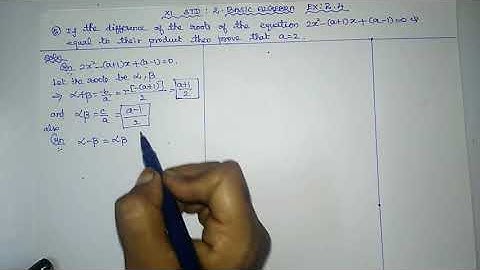 XI STD : 2. BASIC ALGEBRA EX: 2.4
⑥ If the difference of the roots of the equation 2x²-(a+1)x+(a-1)=0 is
equal to their product then prove that a=2.
Soln:
Gn 2x²-(a+1)x+(a-1)=0.
Let its roots be α, β
⇒ α+β = -b/a = -[-(a+1)]/2 = a+1/2
and αβ = c/a = a-1/2
also
Gn α-β = αβ